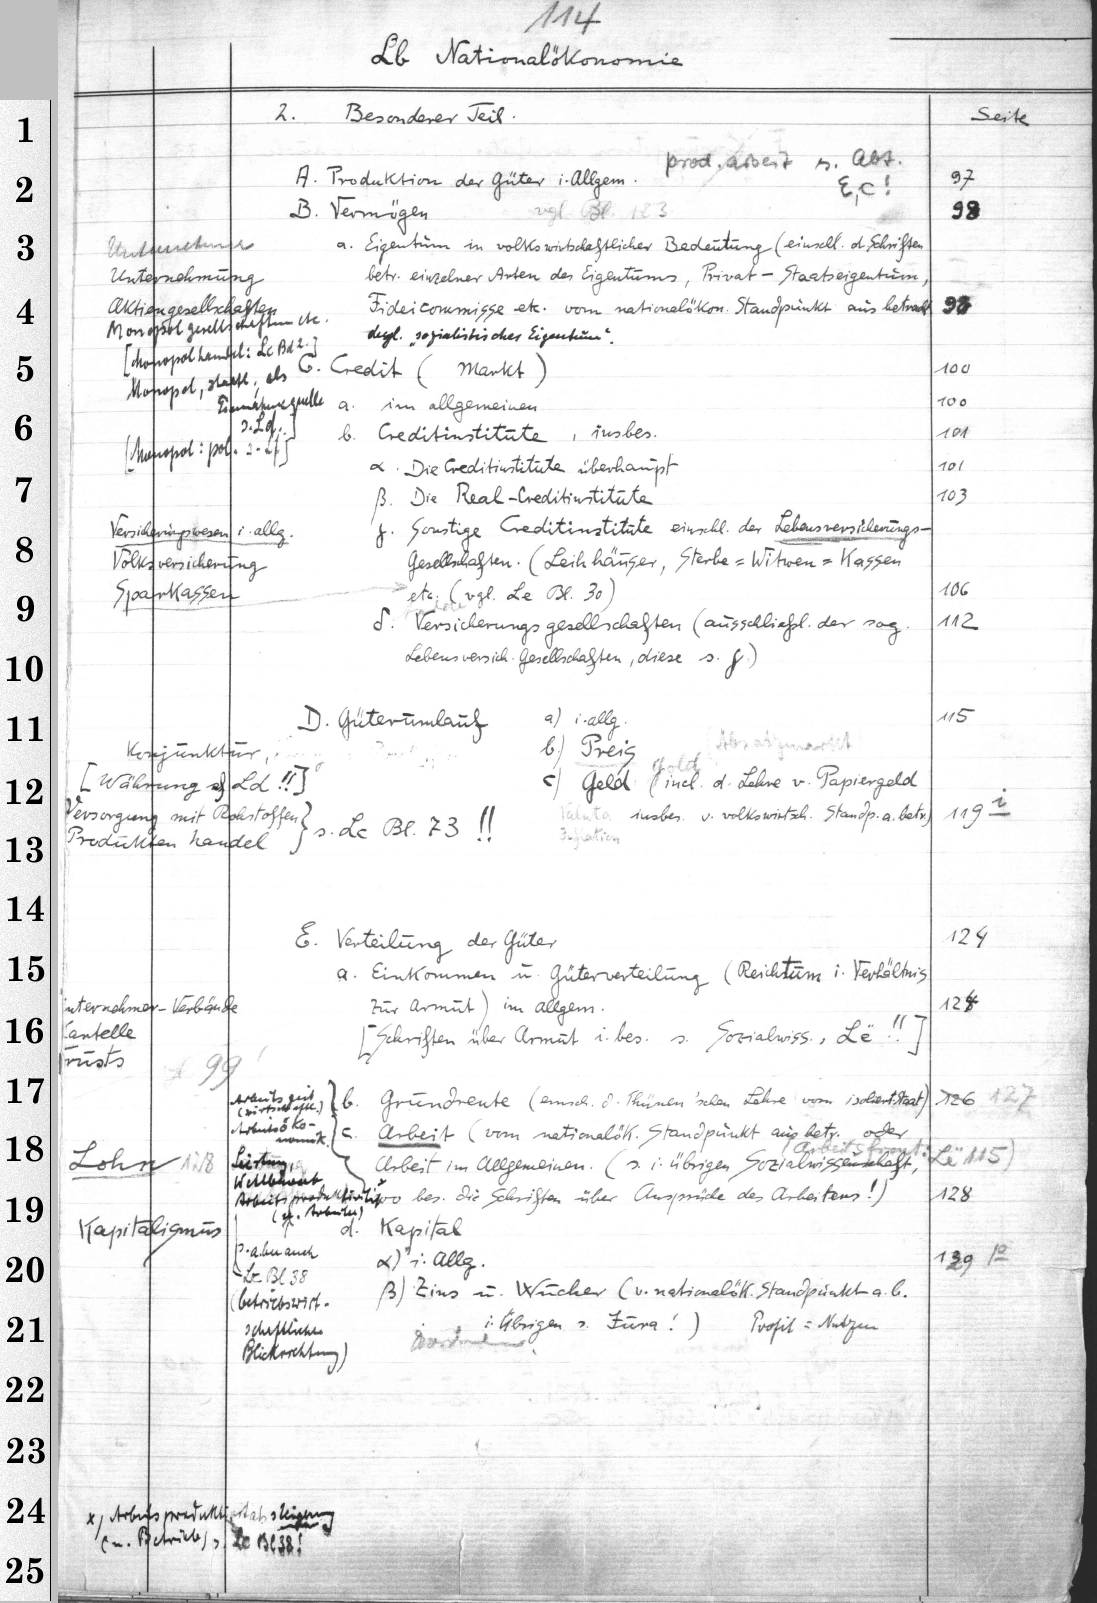 114
Lb Nationalökonomie
2. Besonderer Teil. Seite
prod. Arbeit s. Abt.
E, c!
A. Produktion der Güter i. Allgem. 97
B. Vermögen vgl. Bl. 123 98
a. Eigentum in volkswirtschaftlicher Bedeutung (einschl. d. Schriften
Unternehmung betr. einzelner Arten des Eigentums, Privat- Staatseigentum,
Aktiengesellschaften Fideicommisse etc. vom nationalökon. Standpunkt aus betracht
Monopolgesellschaften etc. dergl. "sozialistisches Eigentum".
[Monopolhandel: Lc Bd 2.]
C. Credit (Markt) 100
Monopol, staatl., als
Einnahmequelle
s. Ld.]
a. im allgemeinen 100
b. Creditinstitute, insbes. 101
[Monopol: pol.
α. Die Creditinstitute überhaupt 101
β. Die Real-Creditinstitute 103
Versicherungswesen i. allg. γ. Sonstige Creditinstitute einschl. der Lebensversicherungs-
Volksversicherung Gesellschaften. (Leihhäuser, Sterbe= Witwen= Kassen
Sparkassen etc. (vgl. Le Bl. 30) 106
δ. Versicherungsgesellschaften (ausschließl. der sog. 112
Lebensversich. Gesellschaften, diese s. γ.)
D. Güterumlauf a) i. allg. 115
Konjunktur, b.) Preis (Absatzmarkt
Gold
[Währung s. Ld!!] c) Geld (incl. d. Lehre v. Papiergeld
Versorgung mit Rohstoffen Valuta insbes. v. volkswirtsch. Standp. a. betr.) 119 i
Produktenhandel } s. Lc Bl. 73!! Inflation
E. Verteilung der Güter 124
a. Einkommen u. Güterverteilung (Reichtum i. Verhältnis
Unternehmer-Verbände zur Armut) im allgem. 124
Kartelle [Schriften über Armut i. bes. s. Sozialwiss., Lë!!]
Trusts 99!
Arbeitszeit
(wirtschaftl.) b. Grundrente (einsch. d. Thünen'schen Lehre vom isoliert. Staat) 126 127
Arbeitsöko-
nomik. c. Arbeit (vom nationalök. Standpunkt aus betr. oder
(Arbeitsfront: Lë 115)
Lohn 128 Leistung, Arbeit im Allgemeinen. (s. i. übrigen Sozialwissenschaft,
Wettbewerb
Arbeitsproduktivität x wo bes. die Schriften über Ansprüche des Arbeiters!) 128
Kapitalismus d. Kapital
[s. aber auch α) i. Allg. 129 10
Lc Bl 38
(betriebswirt- β) Zins u. Wucher (v. nationalök. Standpunkt a. b.
schaftliche i. Übrigen s. Jura!) Profit = Nutzen
Blickrichtung)
x) Arbeitsproduktivitätssteigerung
(im Betrieb) s. Lc Bl 38!
1
2
3
4
5
6
7
8
9
10
11
12
13
14
15
16
17
18
19
20
21
22
23
24
25